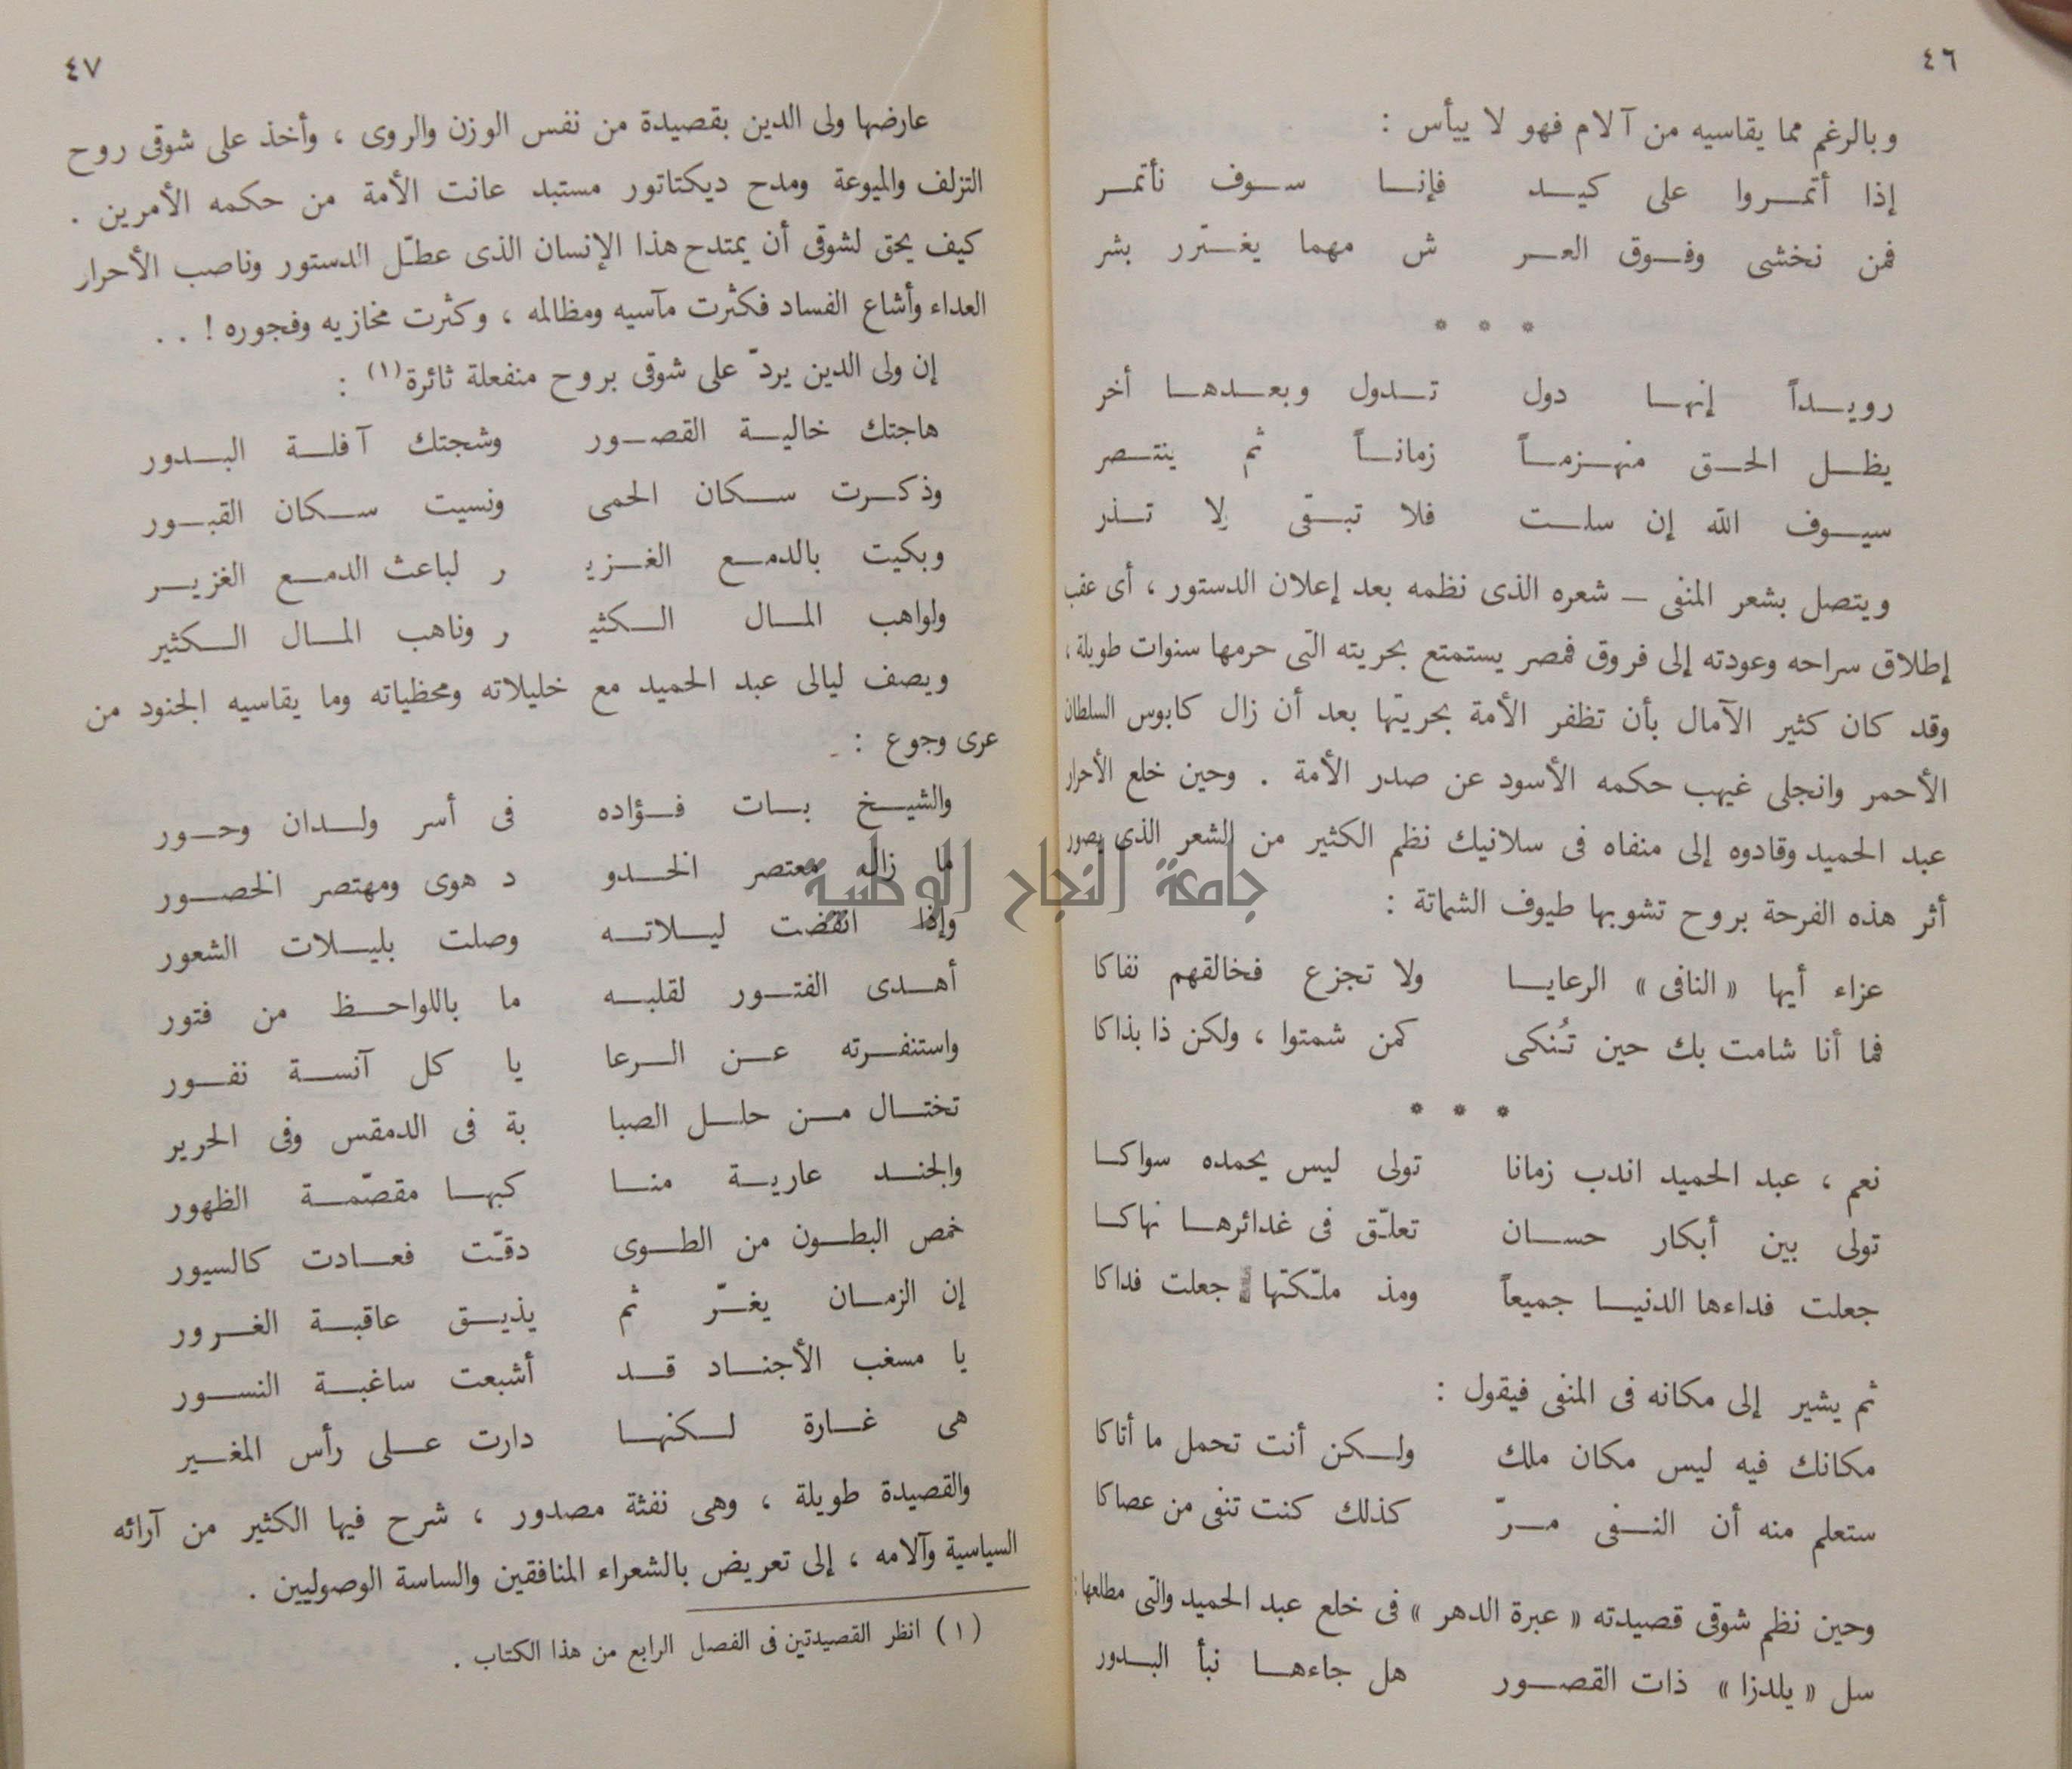 ٤٦
وبالرغم مما يقاسيه من آلام فهو لا ييأس :
إذا أتمـروا على كيـد فإنـا سـوف نأتمـر
فمن نخشى وفـوق العـر ش مهما يغـترر بشر
* * *
رويـداً إنهـا دول تـدول وبعـدهـا أخر
يظـل الحـق منهـزمـاً زمانـاً ثم ينتـصر
سيـوف الله إن سلـت فلا تبـقى لا تـذر
ويتصل بشعر المنفى – شعره الذى نظمه بعد إعلان الدستور ، أى عقب
إطلاق سراحه وعودته إلى فروق فمصر يستمتع بحريته التى حرمها سنوات طويلة ،
وقد كان كثير الآمال بأن تظفر الأمة بحريتها بعد أن زال كابوس السلطان
الأحمر وانجلى غيهب حكمه الأسود عن صدر الأمة . وحين خلع الأحرار
عبد الحميد وقادوه إلى منفاه فى سلانيك نظم الكثير من الشعر الذى يصور
أثر هذه الفرحة بروح تشوبها طيوف الشماتة :
عزاء أيها « النافى » الرعايـا ولا تجزع فخالقهم نفاكا
فما أنا شامت بك حين تُنكى كمن شمتوا ، ولكن ذا بذاكا
* * *
نعم ، عبد الحميد اندب زمانا تولى ليس يحمده سواكـا
تولى بين أبكار حسـان تعلّق فى غدائرهـا نهاكـا
جعلت فداءها الدنيـا جميعاً ومذ ملّكتها جعلت فداكا
ثم يشير إلى مكانه فى المنفى فيقول :
مكانك فيه ليس مكان ملك ولـكن أنت تحمل ما أتاكا
ستعلم منه أن النـفى مـرّ كذلك كنت تنفى من عصاكا
وحين نظم شوقى قصيدته « عبرة الدهر » فى خلع عبد الحميد والتى مطلعها :
سل « يلدزا » ذات القصـور هل جاءهـا نبأ البـدور
٤٧
عارضها ولى الدين بقصيدة من نفس الوزن والروى ، وأخذ على شوقى روح
التزلف والميوعة ومدح ديكتاتور مستبد عانت الأمة من حكمه الأمرين .
كيف يحق لشوقى أن يمتدح هذا الإنسان الذى عطّل الدستور وناصب الأحرار
العداء وأشاع الفساد فكثرت مآسيه ومظالمه ، وكثرت مخازيه وفجوره ! . .
إن ولى الدين يردّ على شوقى بروح منفعلة ثائرة(١) :
هاجتك خاليـة القصـور وشجتك آفلـة البـدور
وذكـرت سـكان الحمى ونسيت سـكان القبـور
وبكيت بالدمـع الغـزيـ ر لباعث الدمـع الغزيـر
ولواهب المـال الـكثيـ ر وناهب المـال الـكثير
ويصف ليالى عبد الحميد مع خليلاته ومحظياته وما يقاسيه الجنود من
عرى وجوع :
والشيـخ بـات فـؤاده فى أسر ولـدان وحـور
ما زال معتصر الخـدو د هوى ومهتصر الخصـور
وإذا انقضت ليـلاتـه وصلت بليـلات الشعور
أهـدى الفتـور لقلبـه ما باللواحـظ من فتور
واستنفـرته عـن الـرعا يا كل آنسـة نفـور
تختـال مـن حلـل الصبا بة فى الدمقس وفى الحرير
والجنـد عاريـة منـا كبهـا مقصّمـة الظهور
خمص البطـون من الطـوى دقّت فعـادت كالسيور
إن الزمـان يغـرّ ثم يذيـق عاقبـة الغـرور
يا مسغب الأجنـاد قـد أشبعت ساغبـة النسـور
هى غـارة لـكنهـا دارت عـلى رأس المغـير
والقصيدة طويلة ، وهى نفثة مصدور ، شرح فيها الكثير من آرائه
السياسية وآلامه ، إلى تعريض بالشعراء المنافقين والساسة الوصوليين .
(١) انظر القصيدتين فى الفصل الرابع من هذا الكتاب .
جامعة النجاح الوطنية